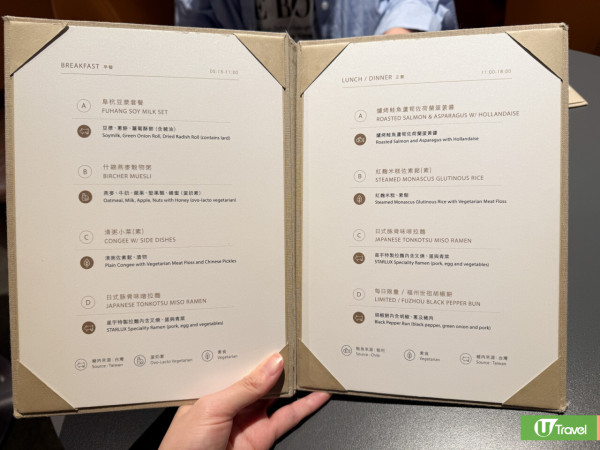 BREAKFAST 早餐
05:15-11:00
A
阜杭豆漿套餐
FUHANG SOY MILK SET
Soymilk, Green Onion Roll, Dried Radish Roll (contains lard)
B
什錦燕麥穀物粥
BIRCHER MUESLI
燕麥、牛奶、蘋果、堅果類、蜂蜜 (蛋奶素)
Oatmeal, Milk, Apple, Nuts with Honey (ovo-lecto vegetarian)
C
清粥小菜(素)
CONGEE W/ SIDE DISHES
Plain Congee with Vegetarian Meat Floss and Chinese Pickles
D
日式豚骨味噌拉麵
JAPANESE TONKOTSU MISO RAMEN
星宇特製拉麵內含叉燒、蛋與青菜
STARLUX Speciality Ramen (pork, egg and vegetables)
豬肉來源:台灣
Source : Taiwan
蛋奶素
Ovo-Lacto Vegetarian
素食
Vegetarian
LUNCH / DINNER 正餐
11:00-19:00
A
爐烤鮭魚蘆筍佐荷蘭蛋黃醬
ROASTED SALMON & ASPARAGUS W/ HOLLANDAISE
Roasted Salmon and Asparagus with Hollandaise
B
紅麴米糕佐素鬆(素)
STEAMED MONASCUS GLUTINOUS RICE
紅麴米糕、素鬆
Steamed Monascus Glutinous Rice with Vegetarian Meat Floss
C
日式豚骨味噌拉麵
JAPANESE TONKOTSU MISO RAMEN
星宇特製拉麵內含叉燒、蛋與青菜
STARLUX Speciality Ramen (pork, egg and vegetables)
D
每日限量 / 福州世祖胡椒餅
LIMITED / FUZHOU BLACK PEPPER BUN
Black Pepper Bun (black pepper, green onion and pork)
Source : Chile
素食
Vegetarian
豬肉來源:台灣
Source : Taiwan
U Travel